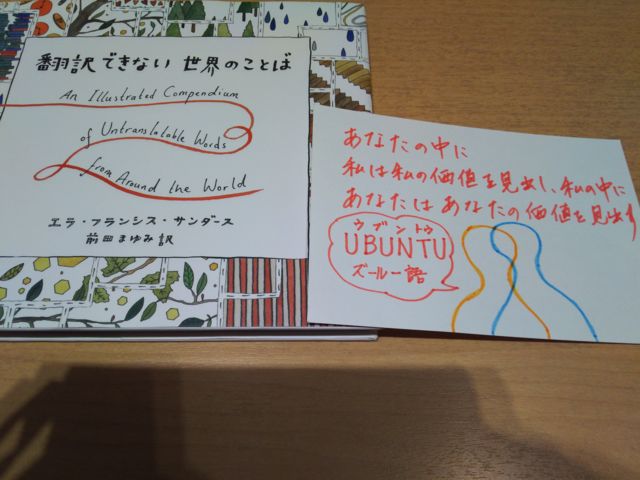 翻訳できない 世界のことば
An Illustrated Compendium
of Untranslatable Words
from Around the World
エラ・フランシス・サンダース
前田まゆみ訳
あなたの中に
私は私の価値を見出し、私の中に
あなたはあなたの価値を見出す
ウブントゥ
UBUNTU
ズールー語